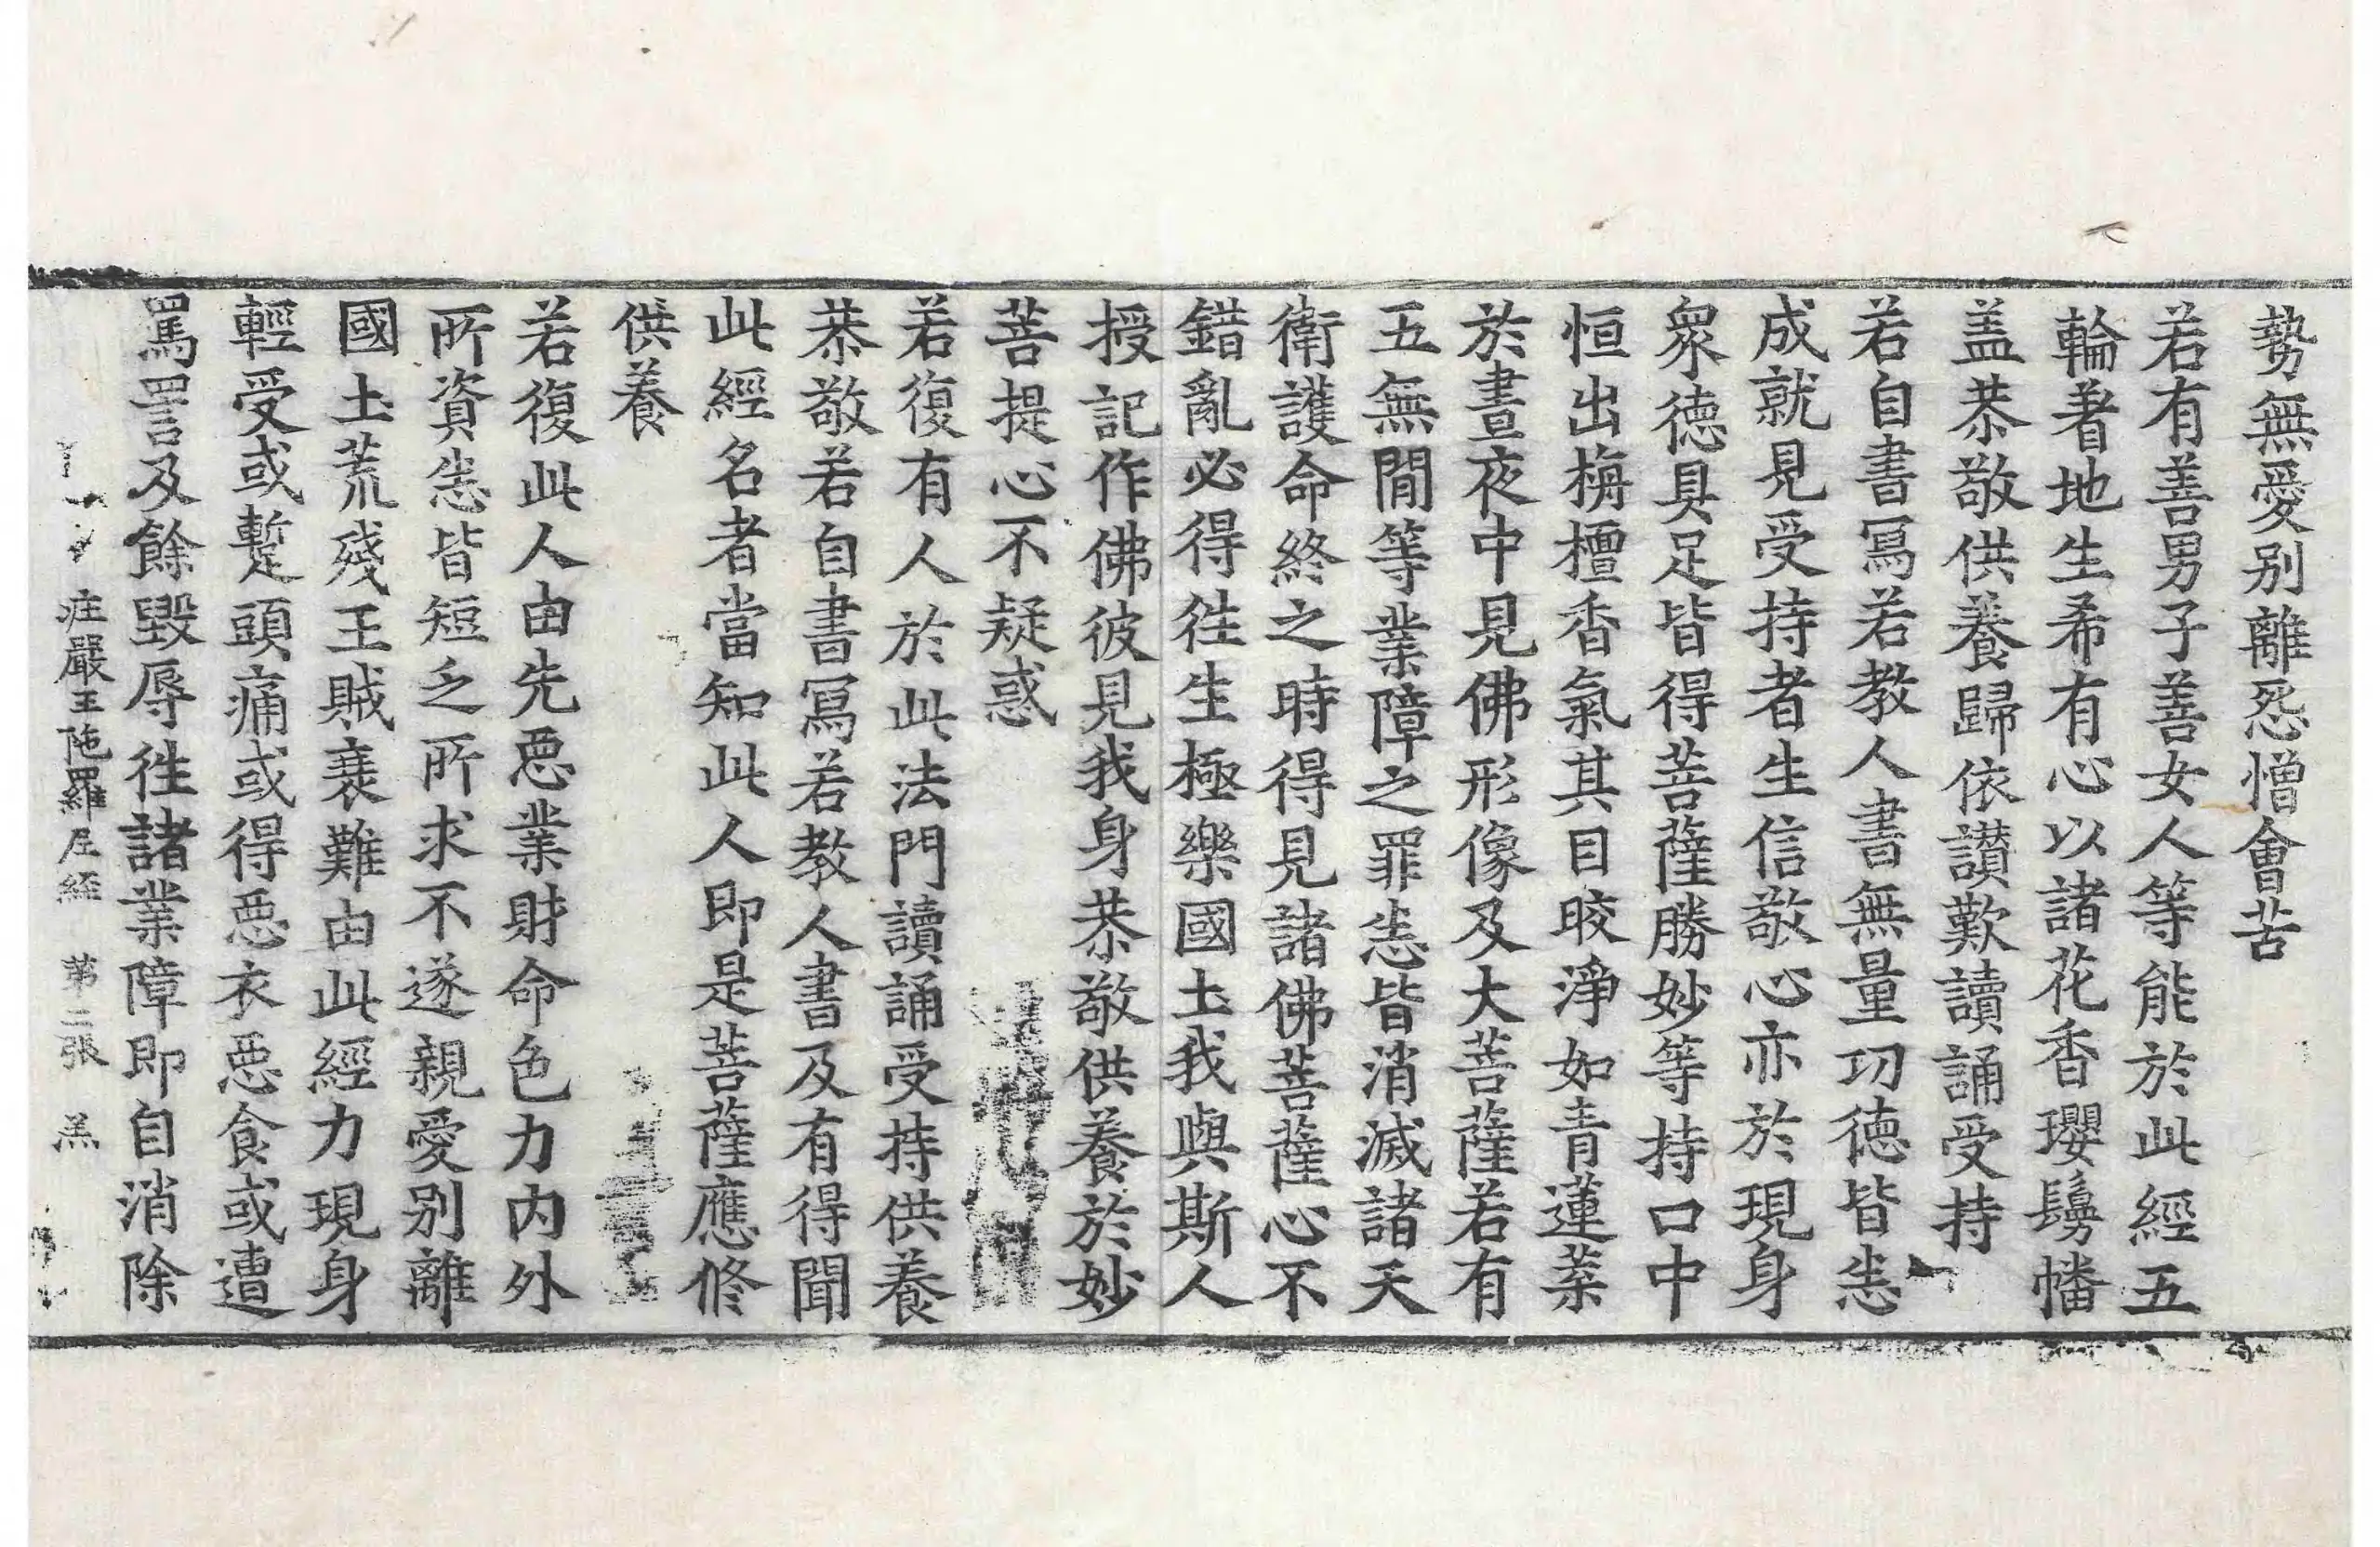 勢無愛別離怨憎會苦
若有善男子善女人等能於此經五
輪著地生希有心以諸花香瓔鬘幡
盖恭敬供養歸依讃歎讀誦受持
若自書寫若教人書無量功德皆悉
成就見受持者生信敬心亦於現身
衆德具足皆得菩薩勝妙等持口中
恒出栴檀香氣其目皎淨如青蓮葉
於晝夜中見佛形像及大菩薩若有
五無閒等業障之罪悉皆消滅諸天
衛護命終之時得見諸佛菩薩心不
錯亂必得往生極樂國土我與斯人
授記作佛彼見我身恭敬供養於妙
菩提心不疑惑
若復有人於此法門讀誦受持供養
恭敬若自書寫若教人書及有得聞
此經名者當知此人即是菩薩應修
供養
若復此人由先惡業財命色力內外
所資悉皆短乏所求不遂親愛別離
國土荒殘王賊衰難由此經力現身
輕受或暫頭痛或得惡衣惡食或遭
罵詈及餘毀辱徃諸業障即自消除
庄嚴王陁羅尼經 第二張 羔